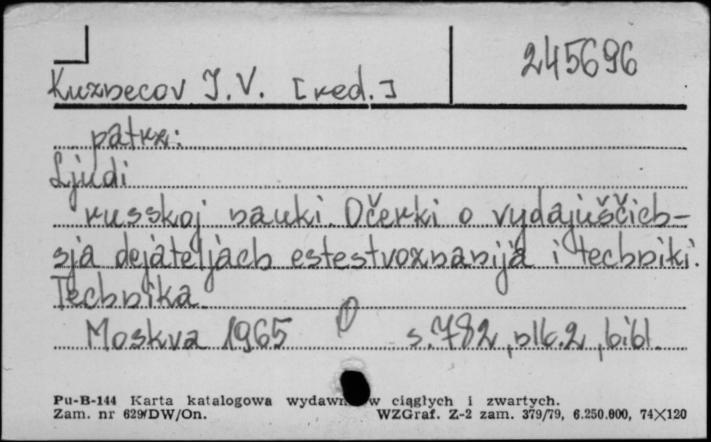 245696
Kuznecov I.V. [red.]
patrz:
Ljudi
russkoj nauki. Očerki o vydajuščich-
sja dejateljach estestvoznanija i techniki.
Technika.
Moskva 1965 s. 782, nlb. 2, bibl.
Pu-B-144 Karta katalogowa wydawn w ciągłych i zwartych.
Zam. nr 629/DW/On. WZGraf. Z-2 zam. 379/79, 6.250.000, 74×120